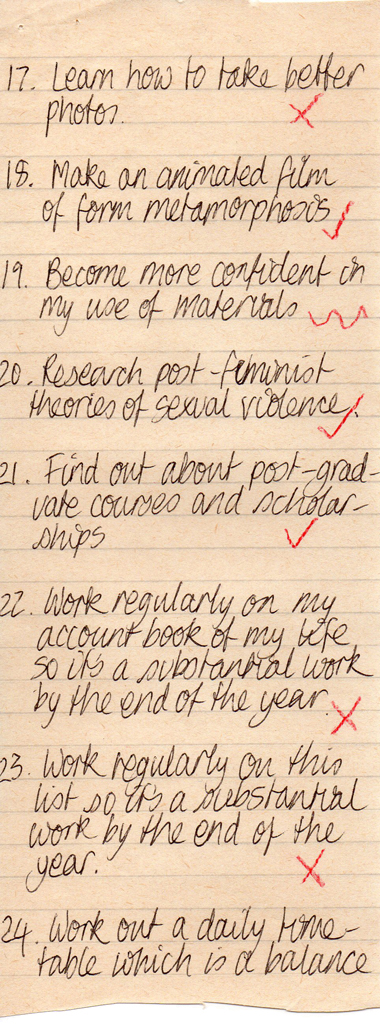 17. Learn how to take better
photos.
18. Make an animated film
of form metamorphosis
19. Become more confident in
my use of materials
20. Research post-feminist
theories of sexual violence.
21. Find out about post-grad-
uate courses and scholar-
ships
22. Work regularly on my
account book of my life
so it's a substantial work
by the end of the year.
23. Work regularly on this
list so it's a substantial
work by the end of the
year.
24. Work out a daily time-
table which is a balance